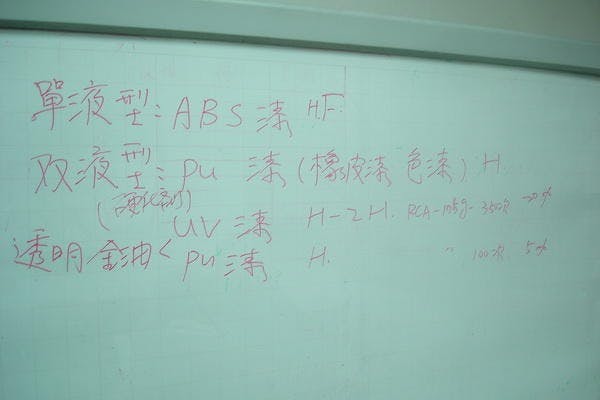 單液型:ABS漆 H.F.
双液型:PU 漆(橡皮漆 色漆) H.
(硬化劑)
UV漆 H-2H. RCA-175g-350次
透明金油< PU漆 H. " 100次